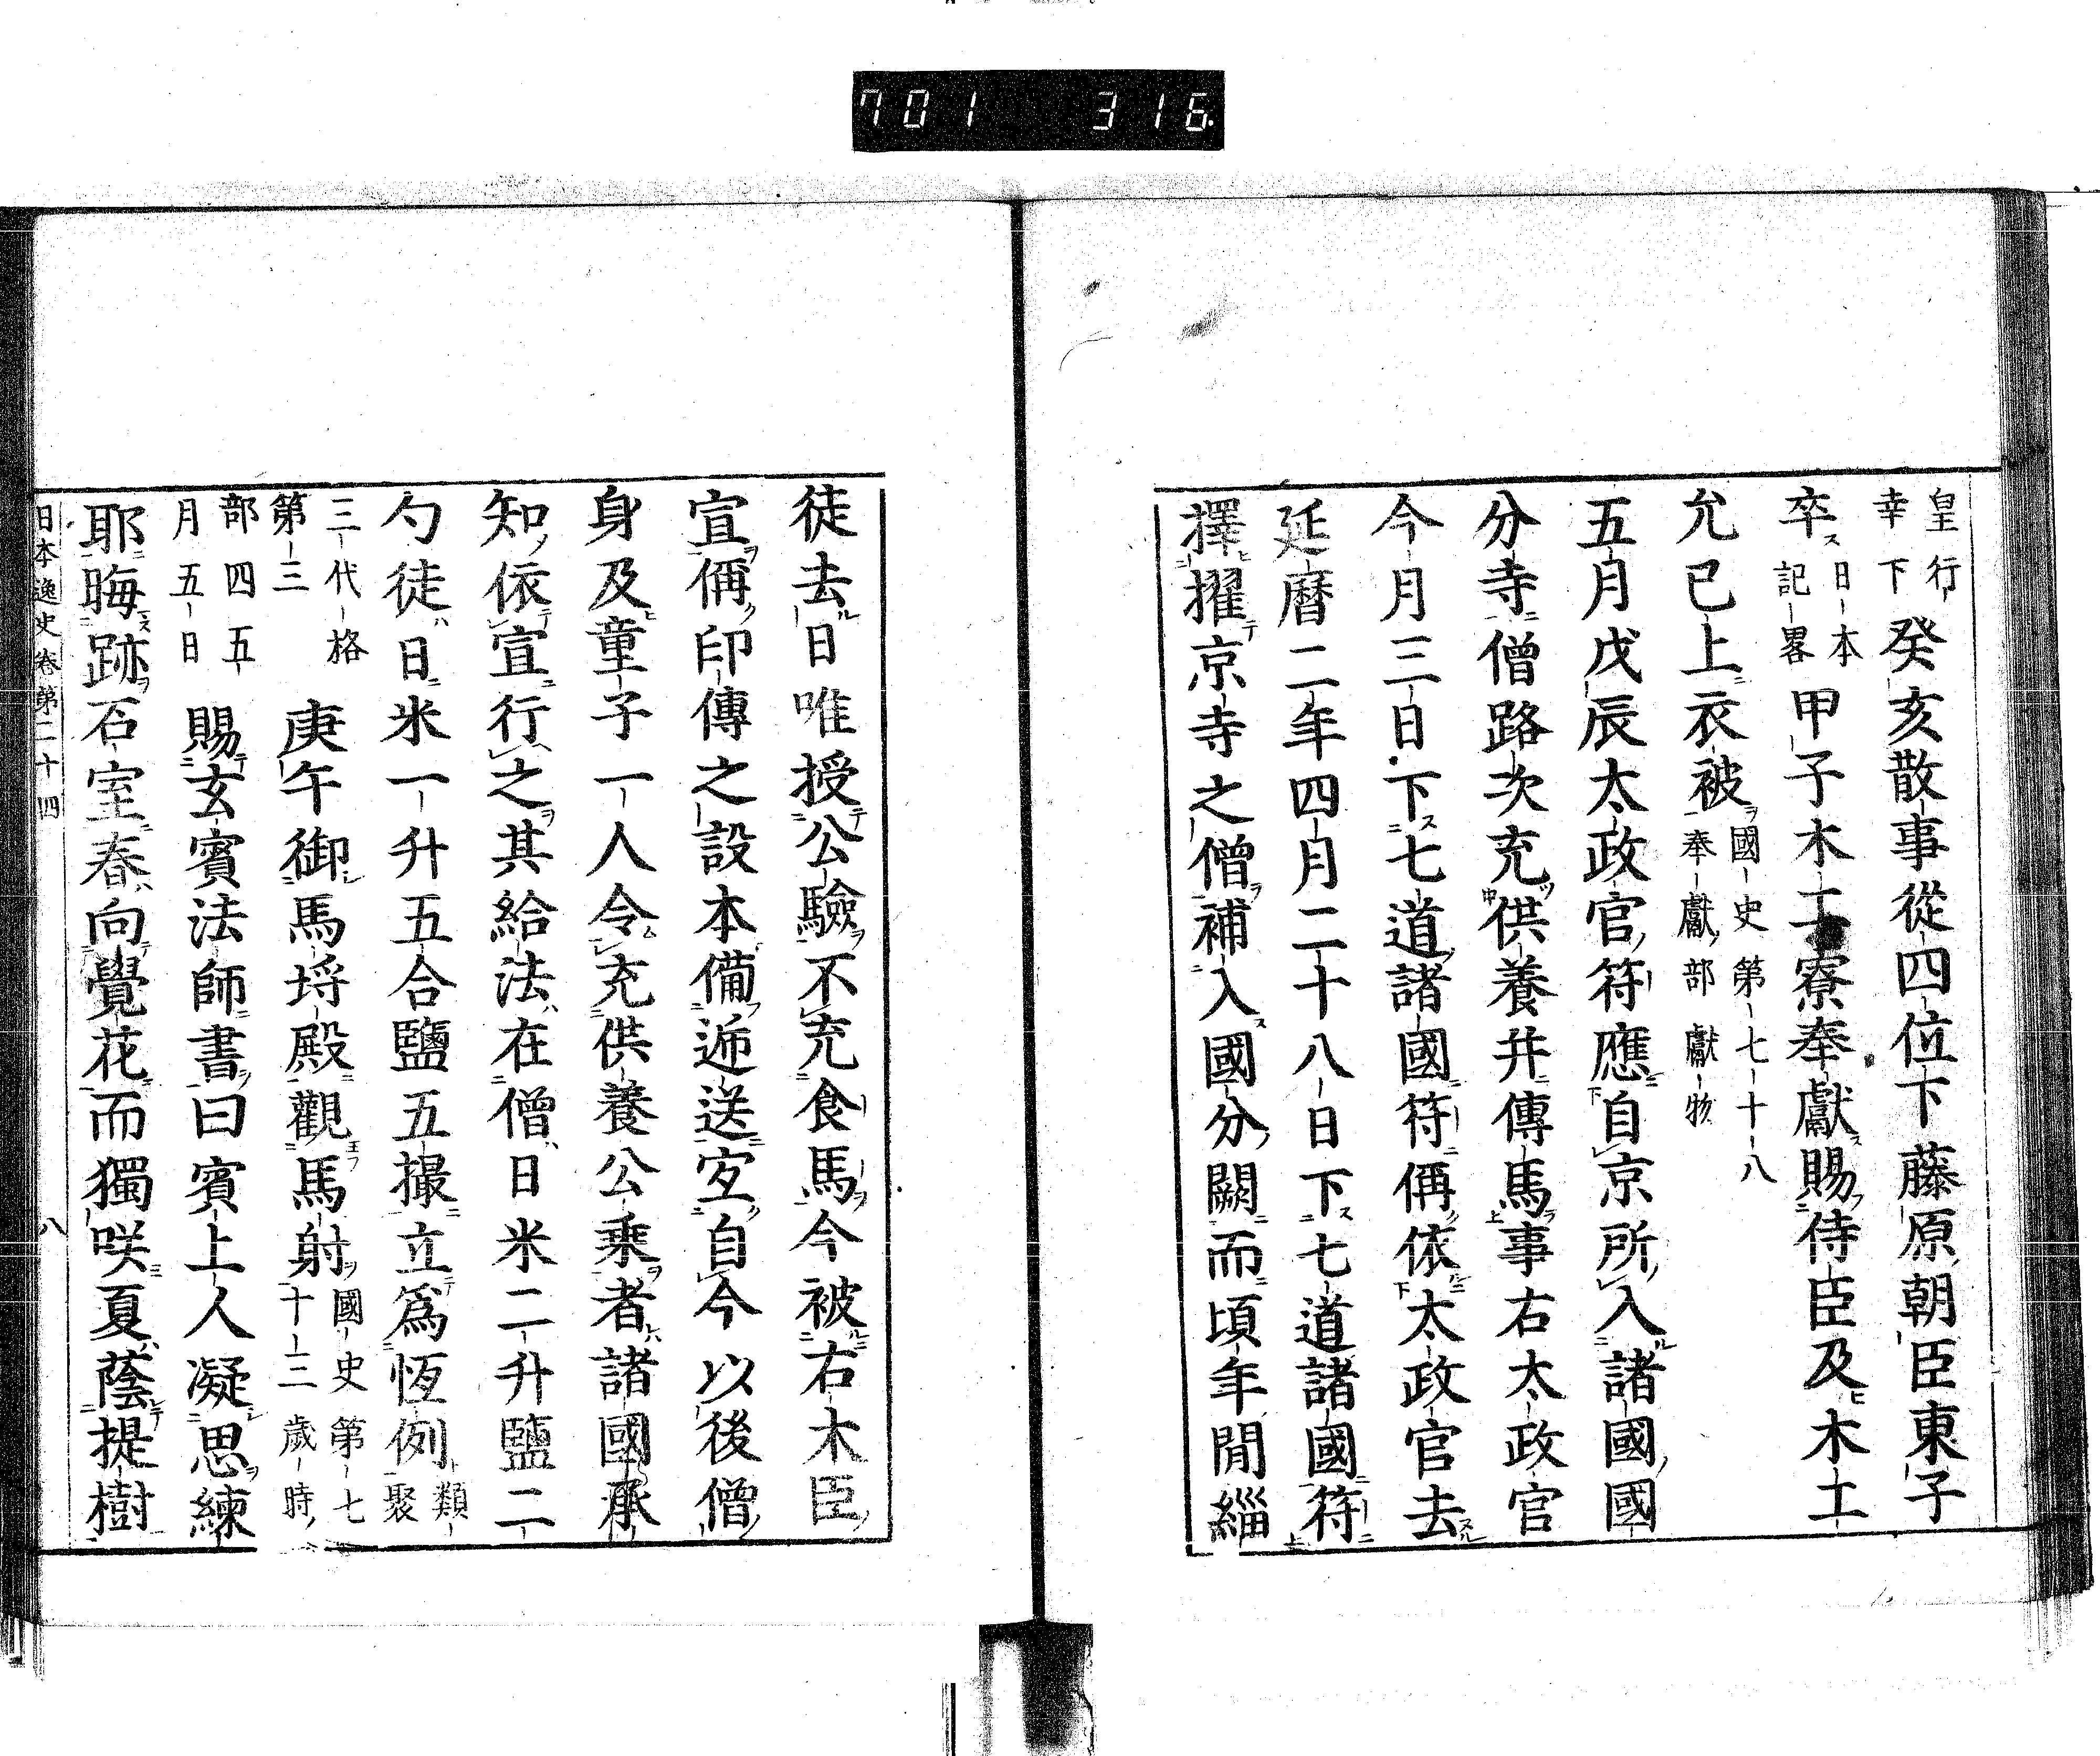 701 316
皇行
幸下
癸亥散事從四位下藤原朝臣東子
卒日本
記畧
甲子木工寮奉獻賜侍臣及木工
允已上衣被
國史第七十八
奉獻部獻物
五月戊辰太政官符應自京所入諸國國
分寺僧路次充供養幷傳馬事右太政官
今月三日下七道諸國符偁依太政官去
延曆二年四月二十八日下七道諸國符
擇擢京寺之僧補入國分闕而頃年間緇
徒去日唯授公驗不充食馬今被右大臣
宣偁印傳之設本備逓送宜自今以後僧
身及童子一人令充供養公乘者諸國承
知依宣行之其給法在僧日米二升鹽二
勺徒日米一升五合鹽五撮立爲恆例
類
聚
三代格
第三
庚午御馬埒殿觀馬射
國史第七
十三歲時
部四五
月五日
賜玄賓法師書曰賓上人凝思練
耶晦跡石室春向覺花而獨咲夏蔭提樹
日本逸史卷第二十四 八